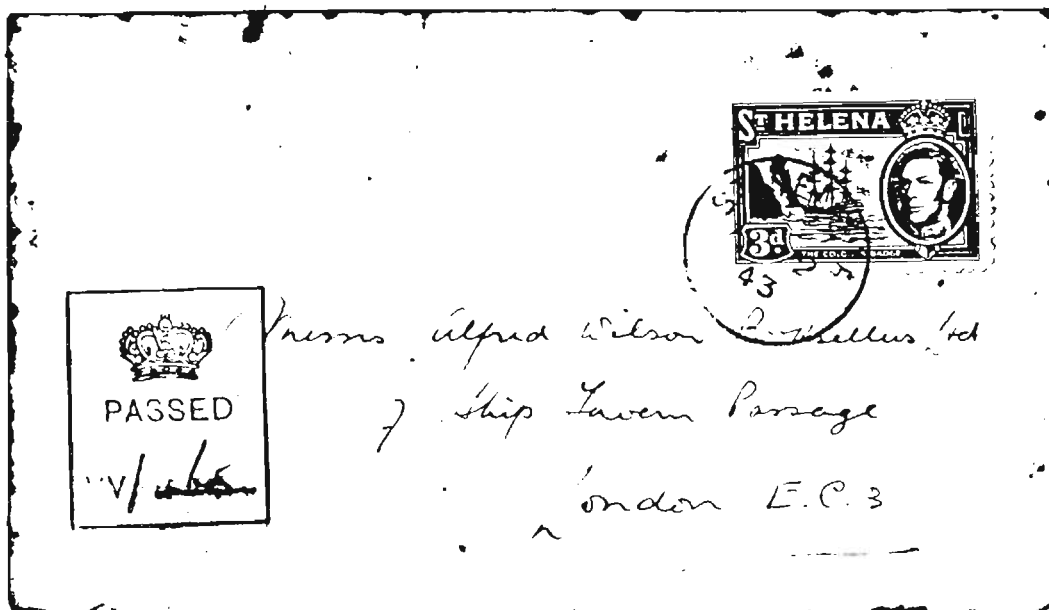 ST HELENA
3d.
43
PASSED
Messrs Alfred Wilson Ltd
7 Ship Tavern Passage
London E.C.3